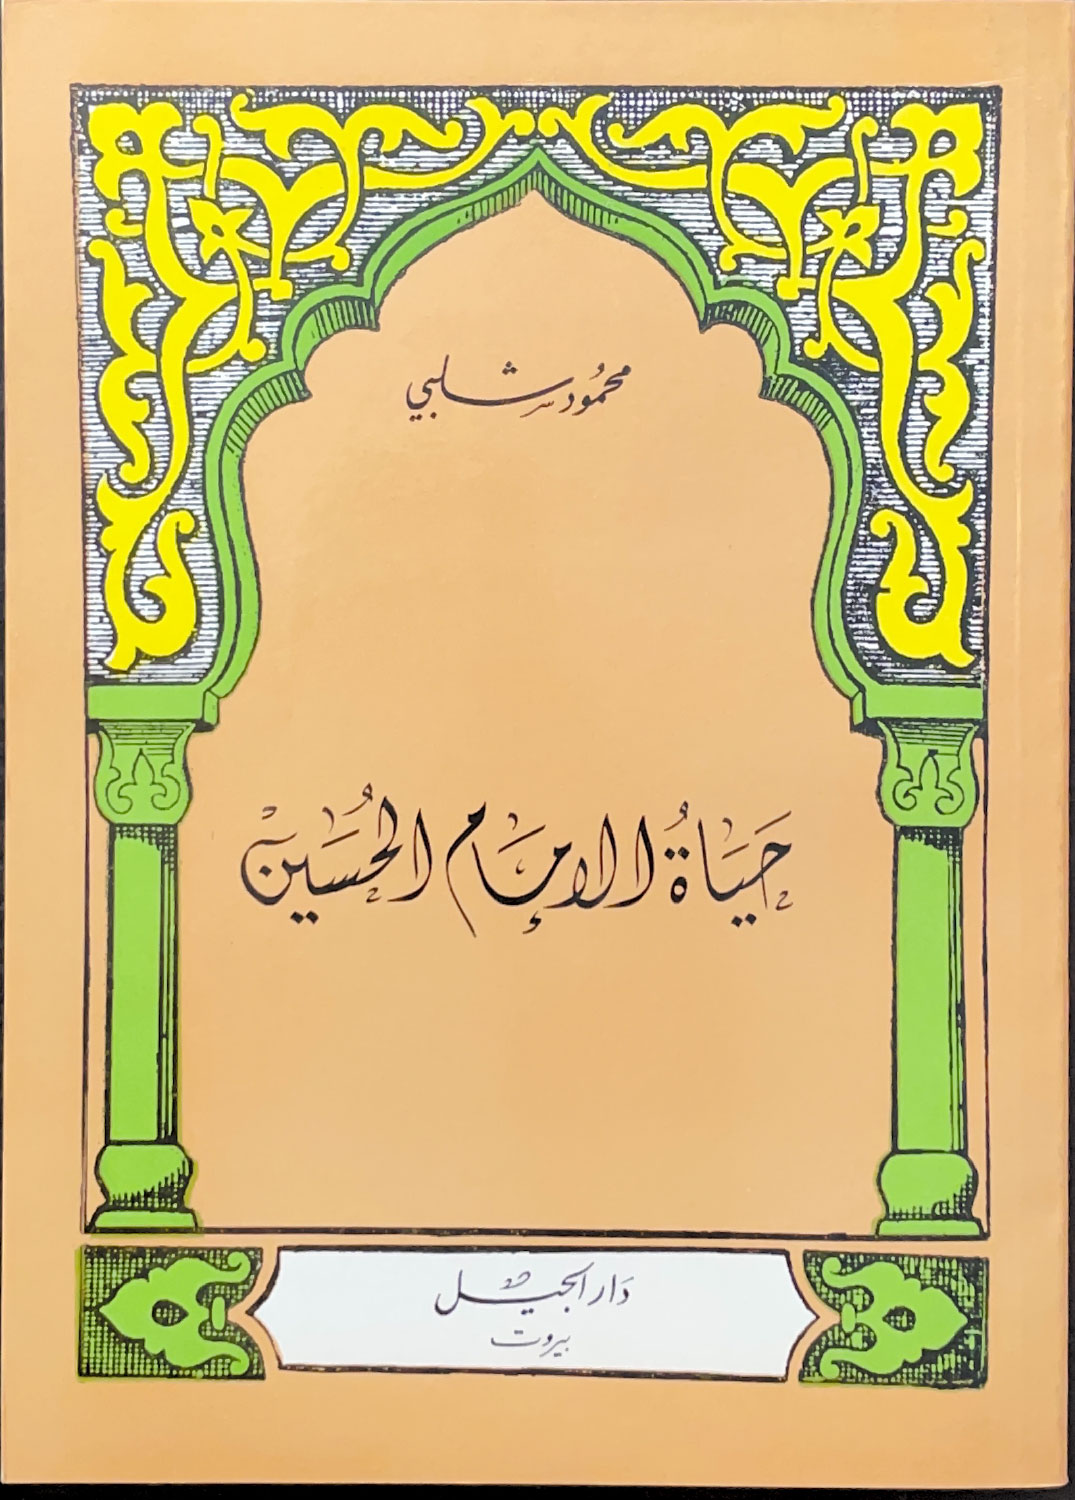 محمُود شلبي
حيَاةُ الإمَام الحُسَين
دَار الجيل
بيروت